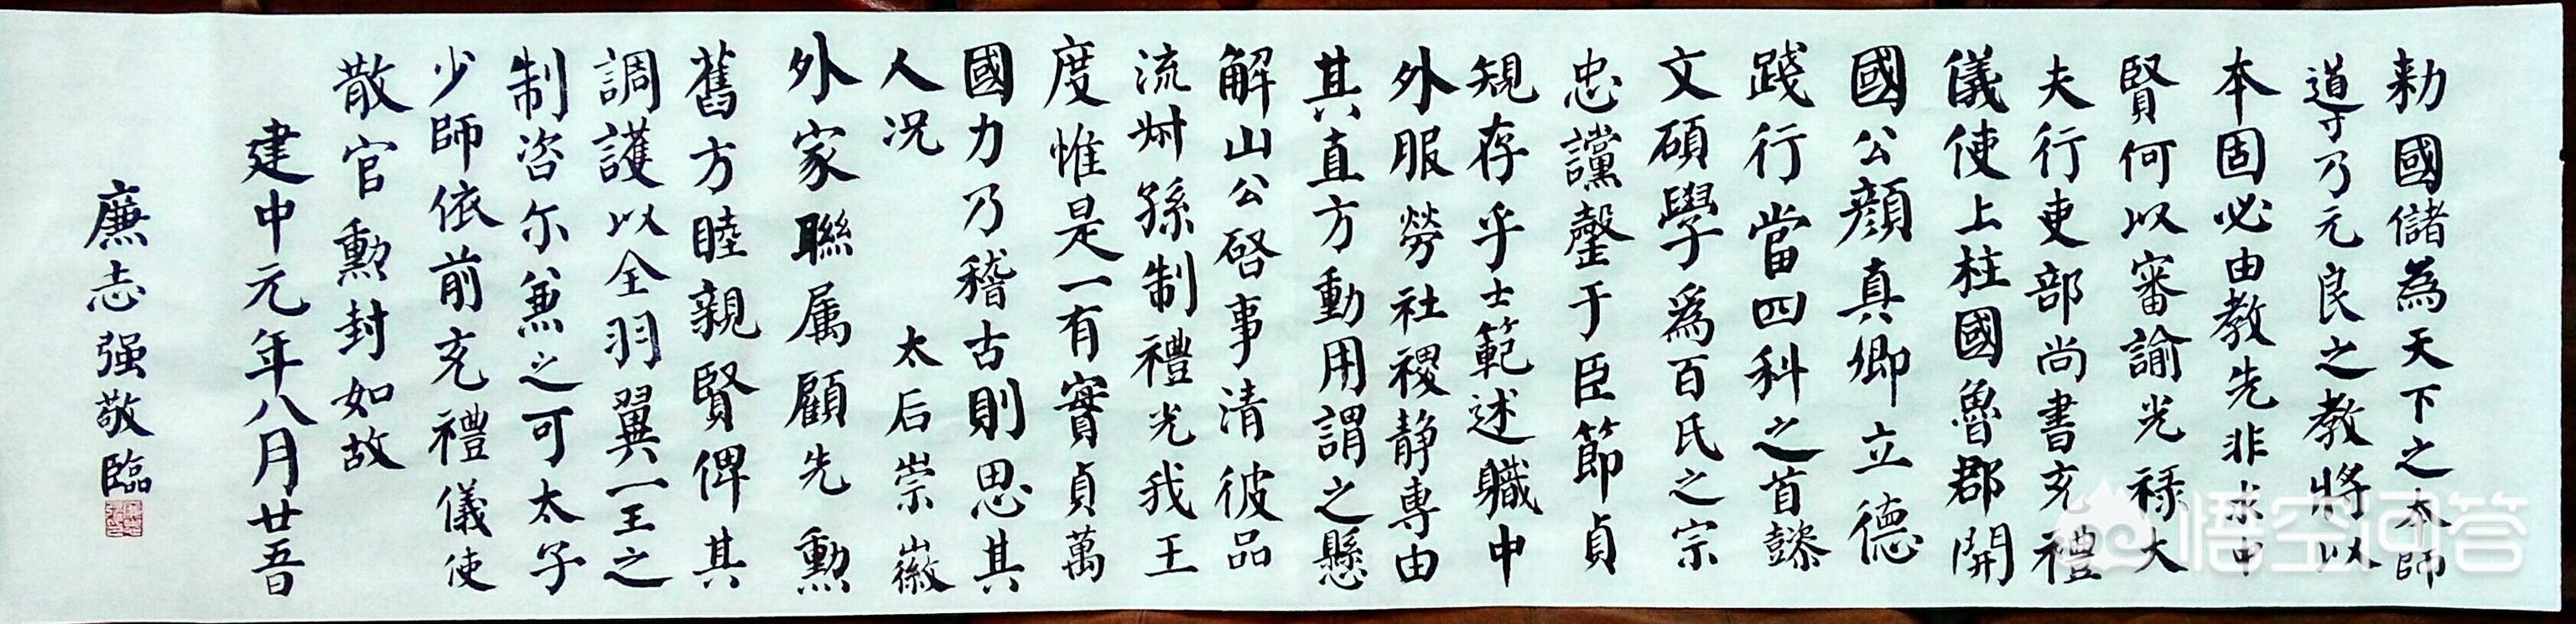 勅國儲為天下之本師
導乃元良之教將以
本固必由教先非求中
賢何以審諭光禄大
夫行吏部尚書充禮
儀使上柱國魯郡開
國公顔真卿立德
踐行當四科之首懿
文碩學爲百氏之宗
忠讜罄于臣節貞
規存乎士範述職中
外服勞社稷静專由
其直方動用謂之懸
解山公啓事清彼品
流叔孫制禮光我王
度惟是一有實貞萬
國力乃稽古則思其
人况 太后崇徽
外家聯属顧先勳
舊方睦親賢俾其
調護以全羽翼一王之
制咨尔兼之可太子
少師依前充禮儀使
散官勳封如故
建中元年八月廿五日
廉志强敬臨
悟空问答